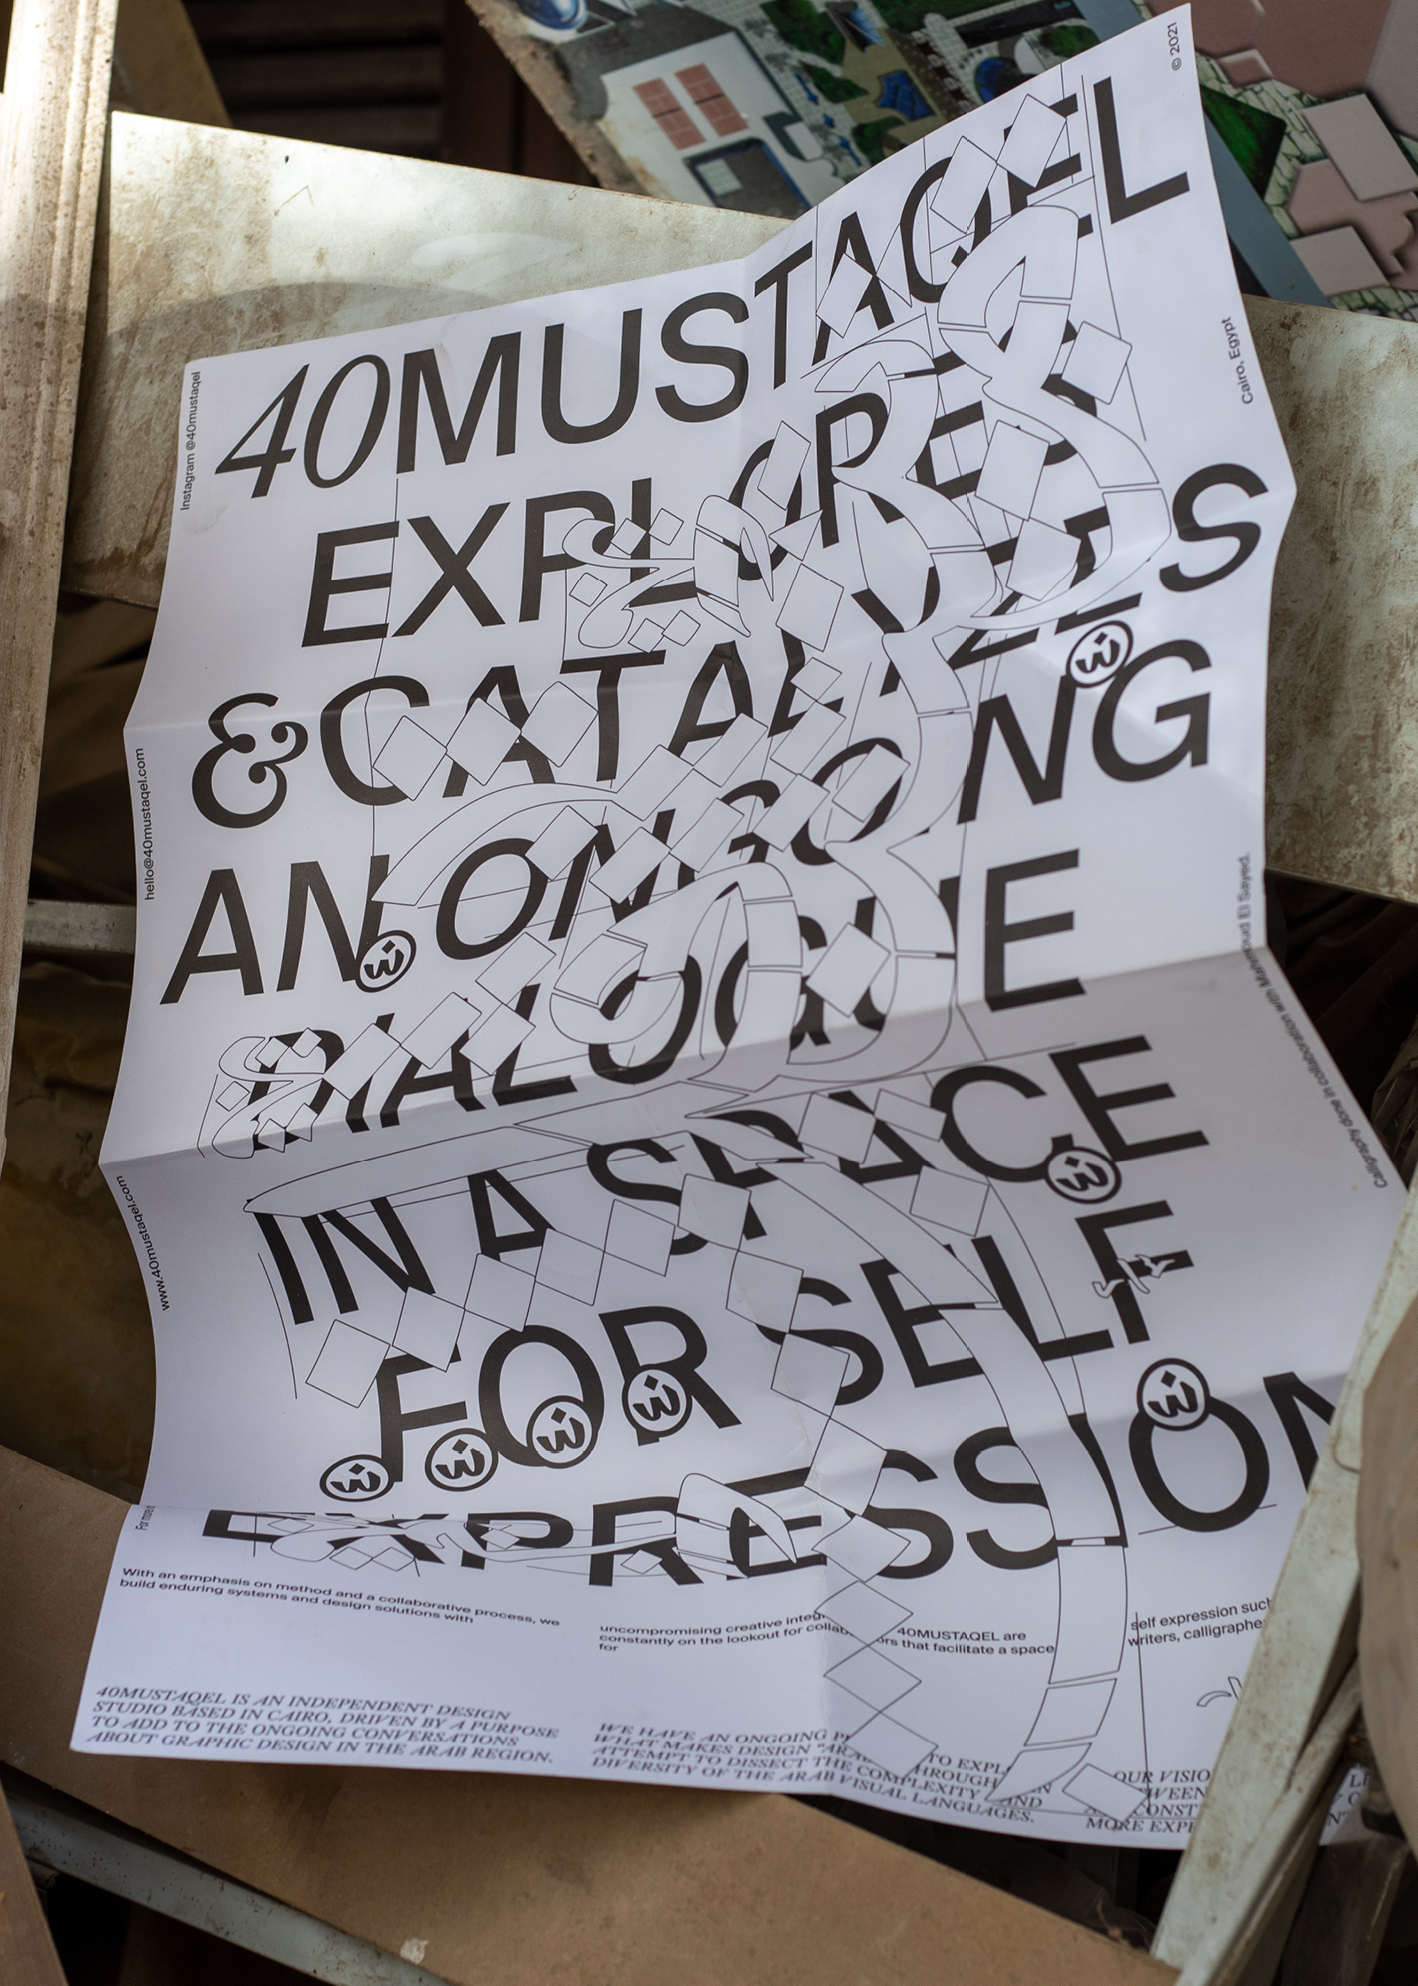 © 2021
Cairo, Egypt
Instagram @40mustaqel
40MUSTAQEL
EXPLORES
& CATALYZES
AN ONGOING
DIALOGUE
IN A SPACE
FOR SELF
EXPRESSION
hello@40mustaqel.com
www.40mustaqel.com
Calligraphy done in collaboration with Mahmoud El Sayed.
With an emphasis on method and a collaborative process, we
build enduring systems and design solutions with
uncompromising creative 40MUSTAQEL are
constantly on the lookout for that facilitate a space
for
self expression such
writers,
40MUSTAQEL IS AN INDEPENDENT DESIGN
STUDIO BASED IN CAIRO, DRIVEN BY A PURPOSE
TO ADD TO THE ONGOING CONVERSATIONS
ABOUT GRAPHIC DESIGN IN THE ARAB REGION.
WE HAVE AN ONGOING TO
WHAT MAKES DESIGN THROUGH
ATTEMPT TO DISSECT THE COMPLEXITY AND
DIVERSITY OF THE ARAB VISUAL LANGUAGES.
OUR
MORE
ث
ث
ث
ث
ث
ث
ث
ث